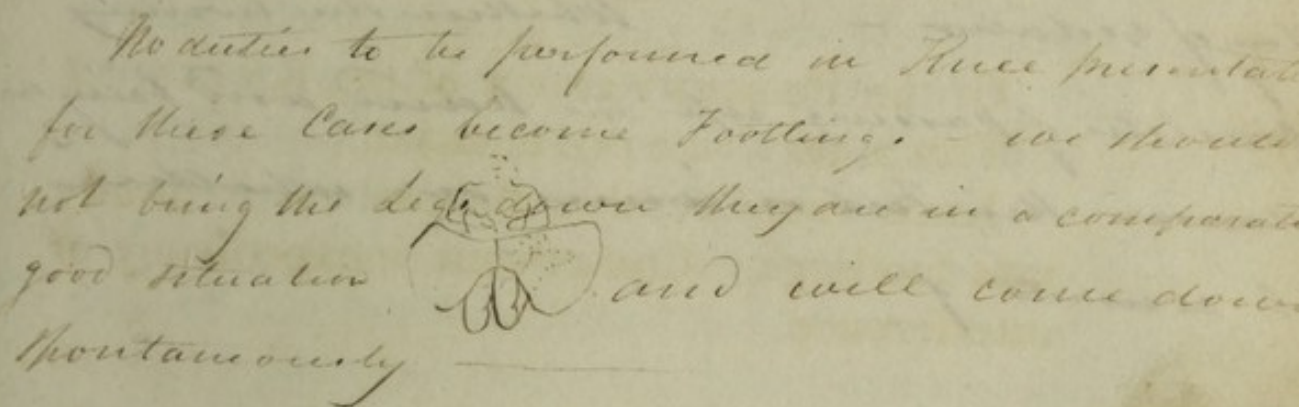 No duties to be performed in Knee presentat
for these Cases become Footlings - we should
not bring the Legs down they are in a comparat
good situation and will come down
spontaneously